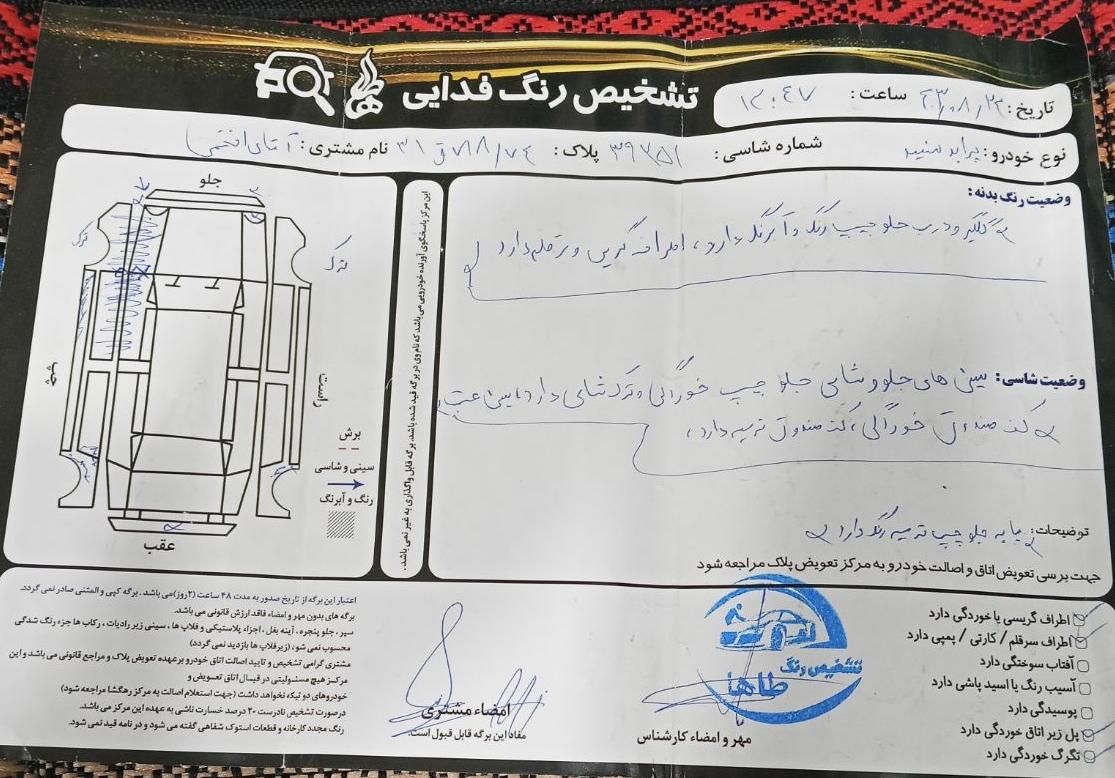 تشخیص رنگ فدایی
تاریخ: ۴۰۳/۰۸/۲۲ ساعت: ۱۲:۴۷
نوع خودرو: پراید سفید شماره شاسی: ۳۹۳۵۱ پلاک:
نام مشتری: آقای
وضعیت رنگ بدنه:
گلگیر و درب جلو چپ رنگ و آبرنگ دارد، اطراف گریس و سرقلم دارد
وضعیت شاسی: سینی های جلو و شاسی جلو چپ خوردگی و ترک شاسی دارد، سینی عقب
کف صندوق خوردگی، کف صندوق ترمیم دارد،
توضیحات: پایه جلو چپ ترمیم رنگ دارد
جهت بررسی تعویض اتاق و اصالت خودرو به مرکز تعویض پلاک مراجعه شود
این مرکز پاسخگوی آورنده خودرویی می باشد که نام وی در برگه قید شده باشد. برگه قابل واگذاری به غیر نمی باشد.
جلو
چپ
راست
عقب
ترک
ترک
برش
سینی و شاسی
رنگ و آبرنگ
اطراف گریسی یا خوردگی دارد
اطراف سرقلم / کارتی / پمپی دارد
آفتاب سوختگی دارد
آسیب رنگ یا اسید پاشی دارد
پوسیدگی دارد
پل زیر اتاق خوردگی دارد
تگرگ خوردگی دارد
تشخیص رنگ
طاها
مهر و امضاء کارشناس
امضاء مشتری
مفاد این برگه قابل قبول است.
اعتبار این برگه از تاریخ صدور به مدت ۴۸ ساعت (۲روز)می باشد . برگه کپی و المثنی صادر نمی گردد.
برگه های بدون مهر و امضاء فاقد ارزش قانونی می باشد.
سپر ، جلو پنجره ، آینه بغل ، اجزاء پلاستیکی و فلاپ ها ، سینی زیر رادیات ، رکاب ها جزء رنگ شدگی
محسوب نمی شود (زیرفلاپ ها بازدید نمی گردد)
مشتری گرامی تشخیص و تایید اصالت اتاق خودرو برعهده تعویض پلاک و مراجع قانونی می باشد و این
مرکز هیچ مسئولیتی در قبال اتاق تعویض و
خودروهای دو تیکه نخواهد داشت (جهت استعلام اصالت به مرکز رهگشا مراجعه شود)
درصورت تشخیص نادرست ۲۰ درصد خسارت ناشی به عهده این مرکز می باشد.
رنگ مجدد کارخانه و قطعات استوک شفاهی گفته می شود و درنامه قید نمی شود.